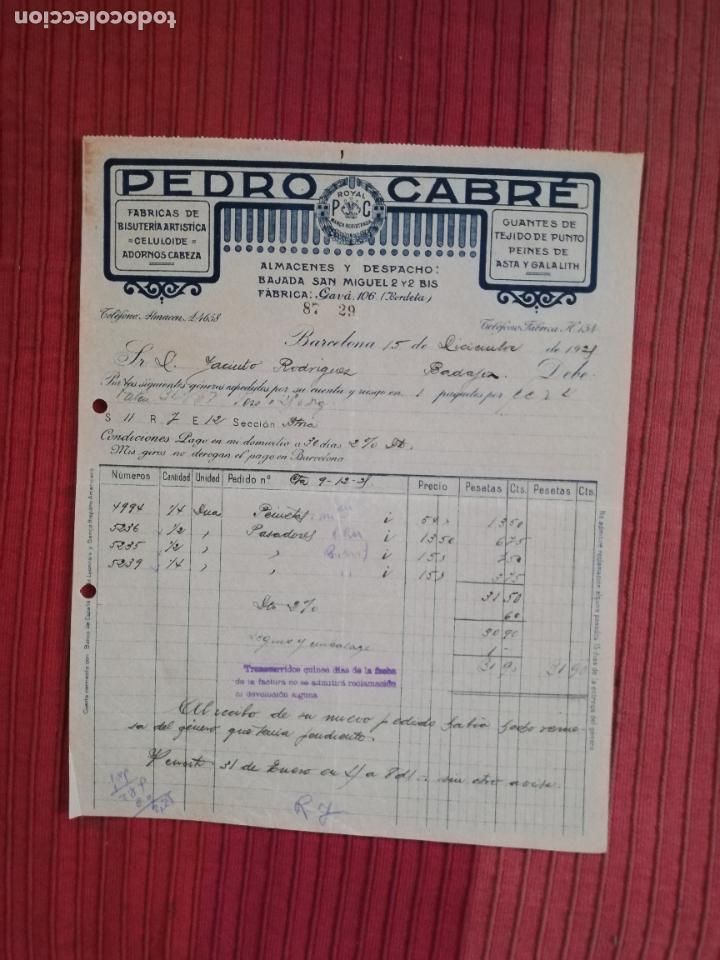 todocoleccion
PEDRO CABRÉ
ROYAL
P C
MARCA REGISTRADA
FÁBRICAS DE
BISUTERÍA ARTÍSTICA
=CELULOIDE=
ADORNOS CABEZA
GUANTES DE
TEJIDO DE PUNTO
PEINES DE
ASTA Y GALALITH
ALMACENES Y DESPACHO:
BAJADA SAN MIGUEL 2 Y 2 BIS
FÁBRICA: Gavá, 106 (Bordeta)
87 29
Teléfono Almacen A 4658
Teléfono Fábrica H 154
Barcelona 15 de Diciembre de 192
Sr. D. Jacinto Rodriguez Badajoz Debe
Por los siguientes géneros expedidos por su cuenta y riesgo en 1 paquetes por
S 11 R 7 E 12 Sección
Condiciones Pago en mi domicilio a 30 días 2% Dto.
Mis giros no derogan el pago en Barcelona
Números Cantidad Unidad Pedido nº 9-12- Precio Pesetas Cts. Pesetas Cts.
4994 1/4 Dna Peinetas 54 13 50
5236 1/2 " Pasadores 13 50 6 75
5235 1/2 " " 15 7 50
5239 1/4 " " 15 3 75
31 50
Dto 2% 60
30 90
Seguro y embalage 1 -
31 90 31 90
Transcurridos quince días de la fecha
de la factura no se admitirá reclamación
ni devolución alguna
Al recibo de su nuevo pedido había hecho
del género que tenía pendiente.
31 de Enero en a 8 d/ sin otro aviso.
R 7
Cuenta corriente con: Banco de España, Lyonnais y Banca
No admitiré reclamación alguna pasados 15 días de la entrega del género